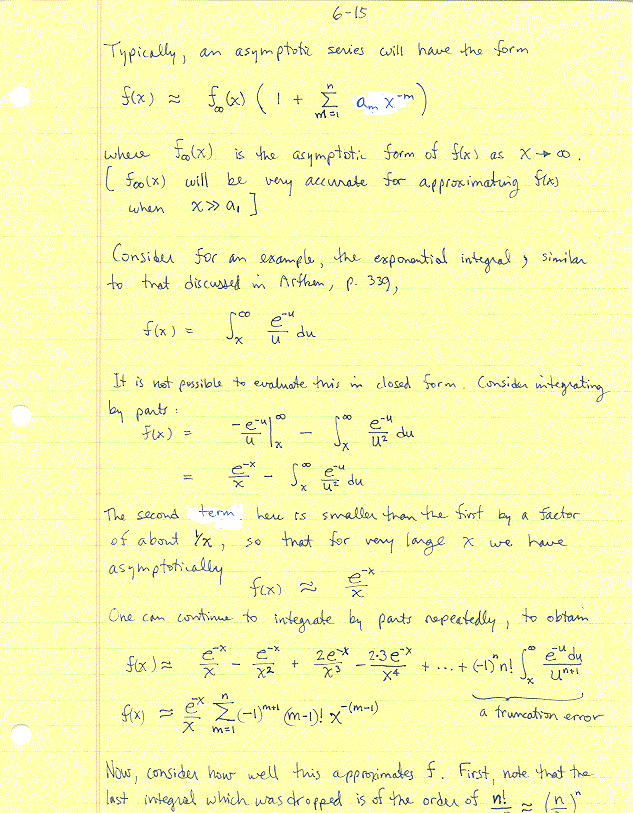 6-15
Typically, an asymptotic series will have the form
f(x) ≈ f∞(x) ( 1 + Σ_{m=1}^{n} a_m x^{-m} )
where f∞(x) is the asymptotic form of f(x) as x → ∞.
[ f∞(x) will be very accurate for approximating f(x)
when x >> a₁ ]
Consider for an example, the exponential integral, similar
to that discussed in Arfken, p. 339,
f(x) = ∫_x^∞ e^{-u}/u du
It is not possible to evaluate this in closed form. Consider integrating
by parts:
f(x) = -e^{-u}/u |_x^∞ - ∫_x^∞ e^{-u}/u² du
= e^{-x}/x - ∫_x^∞ e^{-u}/u² du
The second term here is smaller than the first by a factor
of about 1/x, so that for very large x we have
asymptotically
f(x) ≈ e^{-x}/x
One can continue to integrate by parts repeatedly, to obtain
f(x) ≈ e^{-x}/x - e^{-x}/x² + 2e^{-x}/x³ - 2·3e^{-x}/x⁴ + ... + (-1)^n n! ∫_x^∞ e^{-u}du/u^{n+1}
f(x) ≈ e^{-x}/x Σ_{m=1}^{n} (-1)^{m+1} (m-1)! x^{-(m-1)} a truncation error
Now, consider how well this approximates f. First, note that the
last integral which was dropped is of the order of n! ≈ (n)^n